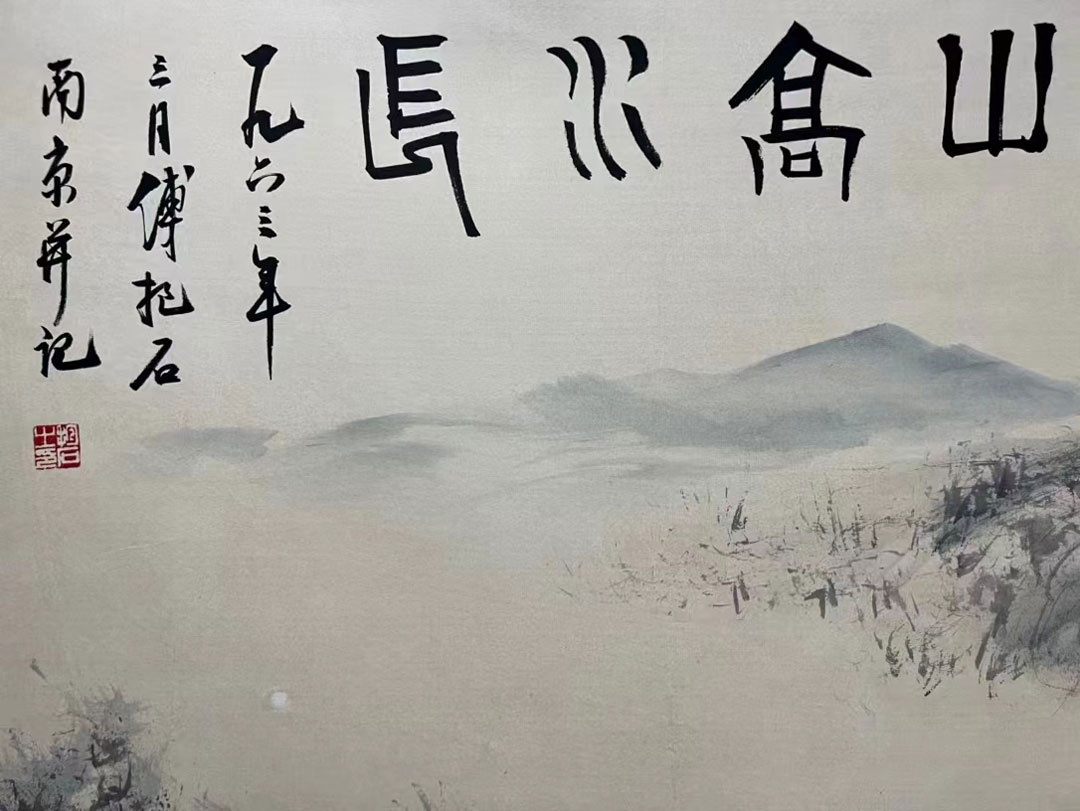 山高水長
一九六三年
三月傅抱石
南京并记
抱石之印